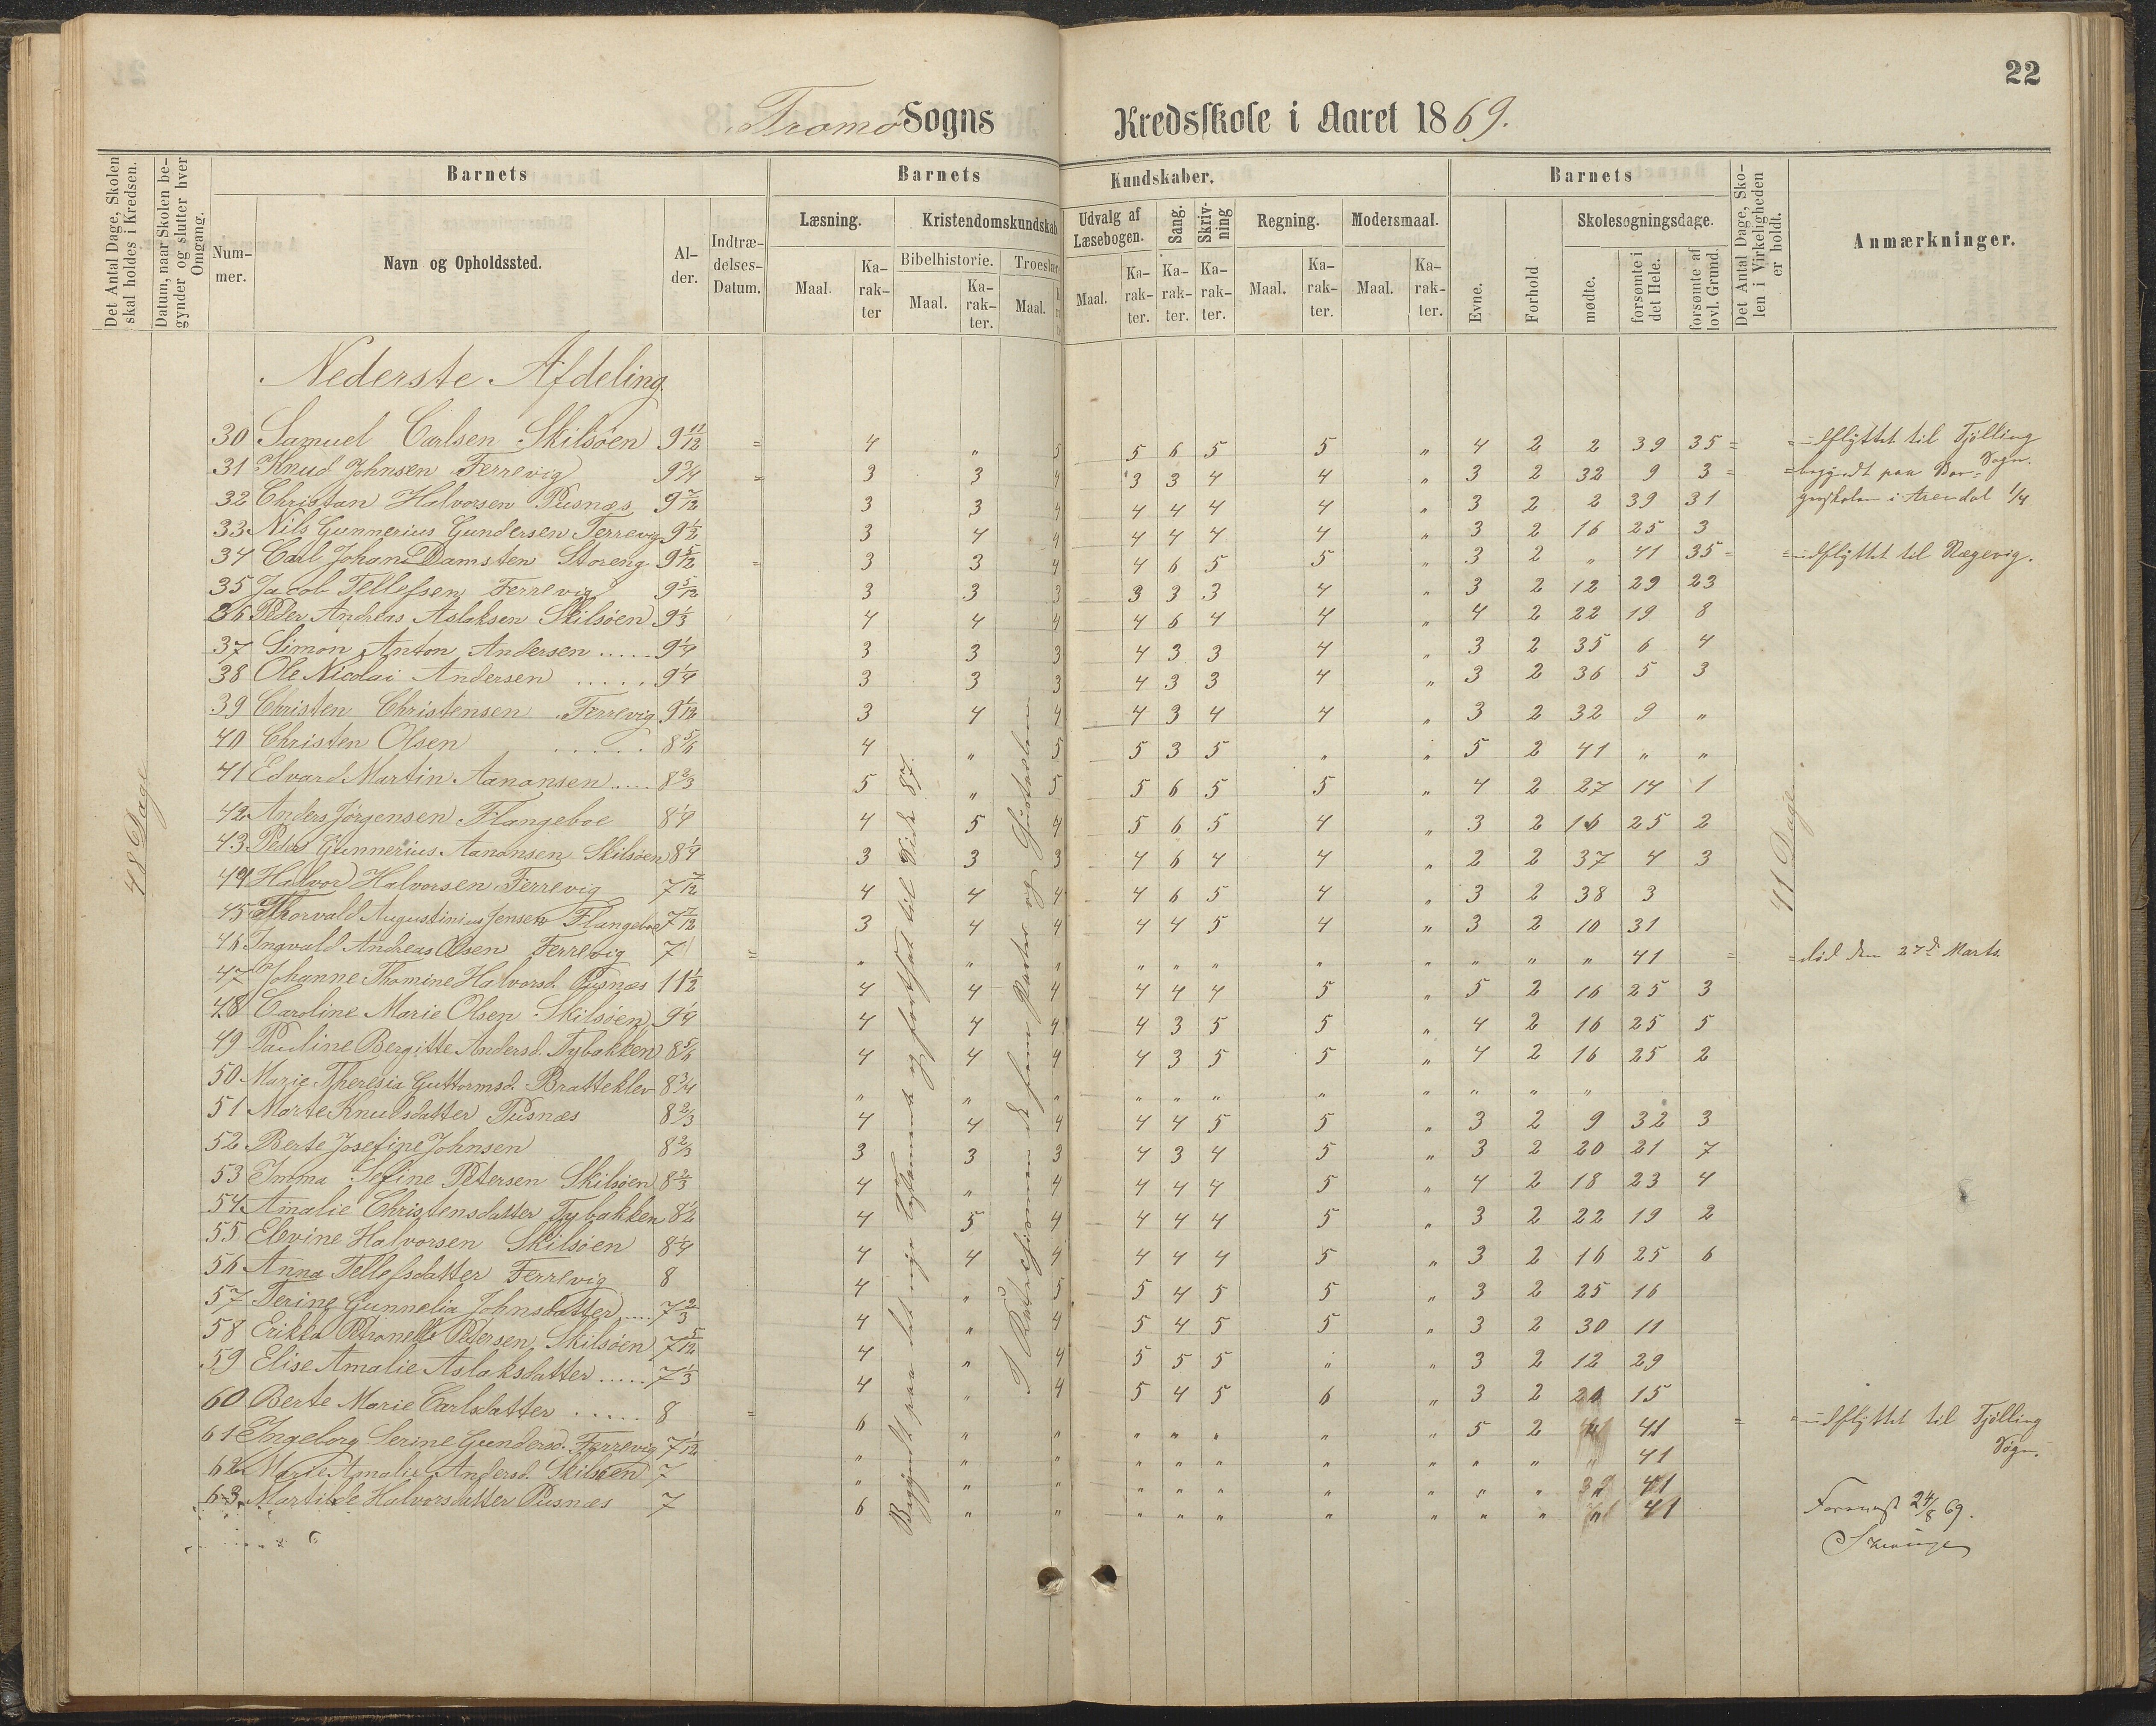 22
Tromø Sogns Kredsskole i Aaret 1869.
Det Antal Dage, Skolen skal holdes i Kredsen.
Datum, naar Skolen begynder og slutter hver Omgang.
Barnets
Barnets Kundskaber.
Barnets
Det Antal Dage, Skolen i Virkeligheden er holdt.
Anmærkninger.
Nummer.
Navn og Opholdssted.
Alder.
Indtrædelses-Datum.
Læsning.
Kristendomskundskab
Udvalg af Læsebogen.
Sang.
Skrivning
Regning.
Modersmaal.
Evne.
Forhold
Skolesøgningsdage.
Bibelhistorie.
Troeslære
Maal.
Karakter
Maal.
Karakter.
Maal.
Maal.
Karakter.
Karakter.
Karakter.
Maal.
Karakter.
Maal.
Karakter.
mødte.
forsømte i det Hele.
forsømte af lovl. Grund.
Nederste Afdeling.
48 Dage
41 Dage
30 Samuel Carlsen Skilsøen 9 11/12 = 4 „ 5 5 6 5 5 „ 4 2 2 39 35 = = udflyttet til Tjølling Sogn.
31 Knud Johnsen Ferrevig 9 3/4 = 3 3 4 3 3 4 4 „ 3 2 32 9 3 = = begyndt paa Bor-
32 Christan Halvorsen Pusnæs 9 7/12 3 3 4 4 4 4 4 „ 3 2 2 39 31 gerskolen i Arendal 1/4
33 Nils Gunnerius Gundersen Ferrevig 9 1/2 3 4 4 4 4 4 4 „ 3 2 16 25 3
34 Carl Johan Damsten Storeng 9 5/12 = 3 3 4 4 6 5 5 „ 3 2 „ 41 35 = = udflyttet til Rægevig.
35 Jacob Tellefsen Ferrevig 9 5/12 3 3 3 3 3 3 4 „ 3 2 12 29 23
36 Peder Andreas Aslaksen Skilsøen 9 1/3 4 4 4 4 6 4 4 „ 4 2 22 19 8
37 Simon Anton Andersen ..... 9 1/4 3 3 3 4 3 3 4 „ 3 2 35 6 4
38 Ole Nicolai Andersen ..... 9 1/4 3 3 3 4 3 3 4 „ 3 2 36 5 3
39 Christen Christensen Ferrevig 9 1/12 3 4 4 4 3 4 4 „ 3 2 32 9 „
40 Christen Olsen ..... 8 5/6 4 „ 5 5 3 5 „ „ 5 2 41 „ „
41 Edvard Martin Aanonsen ..... 8 2/3 5 „ 5 5 6 5 5 „ 4 2 27 14 1
42 Anders Jørgensen Flangeboe 8 1/4 4 5 4 5 6 5 4 „ 3 2 16 25 2
43 Peder Gunnerius Aanonsen Skilsøen 8 1/4 3 3 3 4 6 4 4 „ 2 2 37 4 3
44 Halvor Halvorsen Ferrevig 7 7/12 4 4 4 4 6 5 4 „ 3 2 38 3
45 Thorvald Augustinius Jensen Flangeboe 7 7/12 3 4 4 4 4 5 4 „ 3 2 10 31
46 Ingvald Andreas Olsen Ferrevig 7 = „ „ „ „ „ „ „ „ „ „ „ 41 = = død den 27d Marts.
47 Johanne Thomine Halvorsd. Pusnæs 11 1/2 4 4 4 4 4 4 5 „ 5 2 16 25 3
48 Caroline Marie Olsen Skilsøen 9 1/4 4 4 4 4 3 5 5 „ 4 2 16 25 5
49 Pauline Bergitte Andersd. Tybakken 8 5/6 4 4 4 4 3 5 5 „ 4 2 16 25 2
50 Marie Theresia Guttormsd. Bratteklev 8 3/4 „ „ „ „ „ „ „ „ „ „ „
51 Marte Knudsdatter Pusnæs 8 2/3 4 4 4 4 4 5 5 „ 3 2 9 32 3
52 Berte Josefine Johnsen 8 2/3 3 3 3 4 3 4 5 „ 3 2 20 21 7
53 Imma Sefine Petersen Skilsøen 8 2/3 4 „ 4 4 4 4 5 „ 4 2 18 23 4
54 Amalie Christensdatter Tybakken 8 1/2 4 5 4 4 4 4 5 „ 3 2 22 19 2
55 Elevine Halvorsen Skilsøen 8 1/4 4 4 4 4 4 4 5 „ 3 2 16 25 6
56 Anna Tellefsdatter Ferrevig 8 4 „ 5 5 4 5 5 „ 3 2 25 16
57 Terine Gunnelia Johnsdatter .... 7 2/3 4 „ 4 5 4 5 5 „ 3 2 30 11
58 Erikka Petronelle Petersen Skilsøen 7 5/12 4 „ 4 5 5 5 „ „ 3 2 12 29
59 Elise Amalie Aslaksdatter ..... 7 1/3 4 „ 4 5 4 5 6 „ 3 2 26 15
60 Berte Marie Carlsdatter ..... 8 = 6 „ „ „ „ „ „ „ 5 2 41 = = udflyttet til Tjølling Sogn.
61 Ingeborg Serine Gundersd. Ferrevig 7 1/12 „ „ „ „ „ „ „ „ „ „ „ 41
62 Marie Amalie Andersd. Skilsøen 7 „ „ „ „ „ „ „ „ „ „ 41
63 Martilde Halvorsdatter Pusnæs 7 6 „ „ „ „ „ „ „ „ „ 41
Begyndt paa det nye Testamente og fortsat til Side 87.
I Katechismen de fem Parter og
24/8 69.